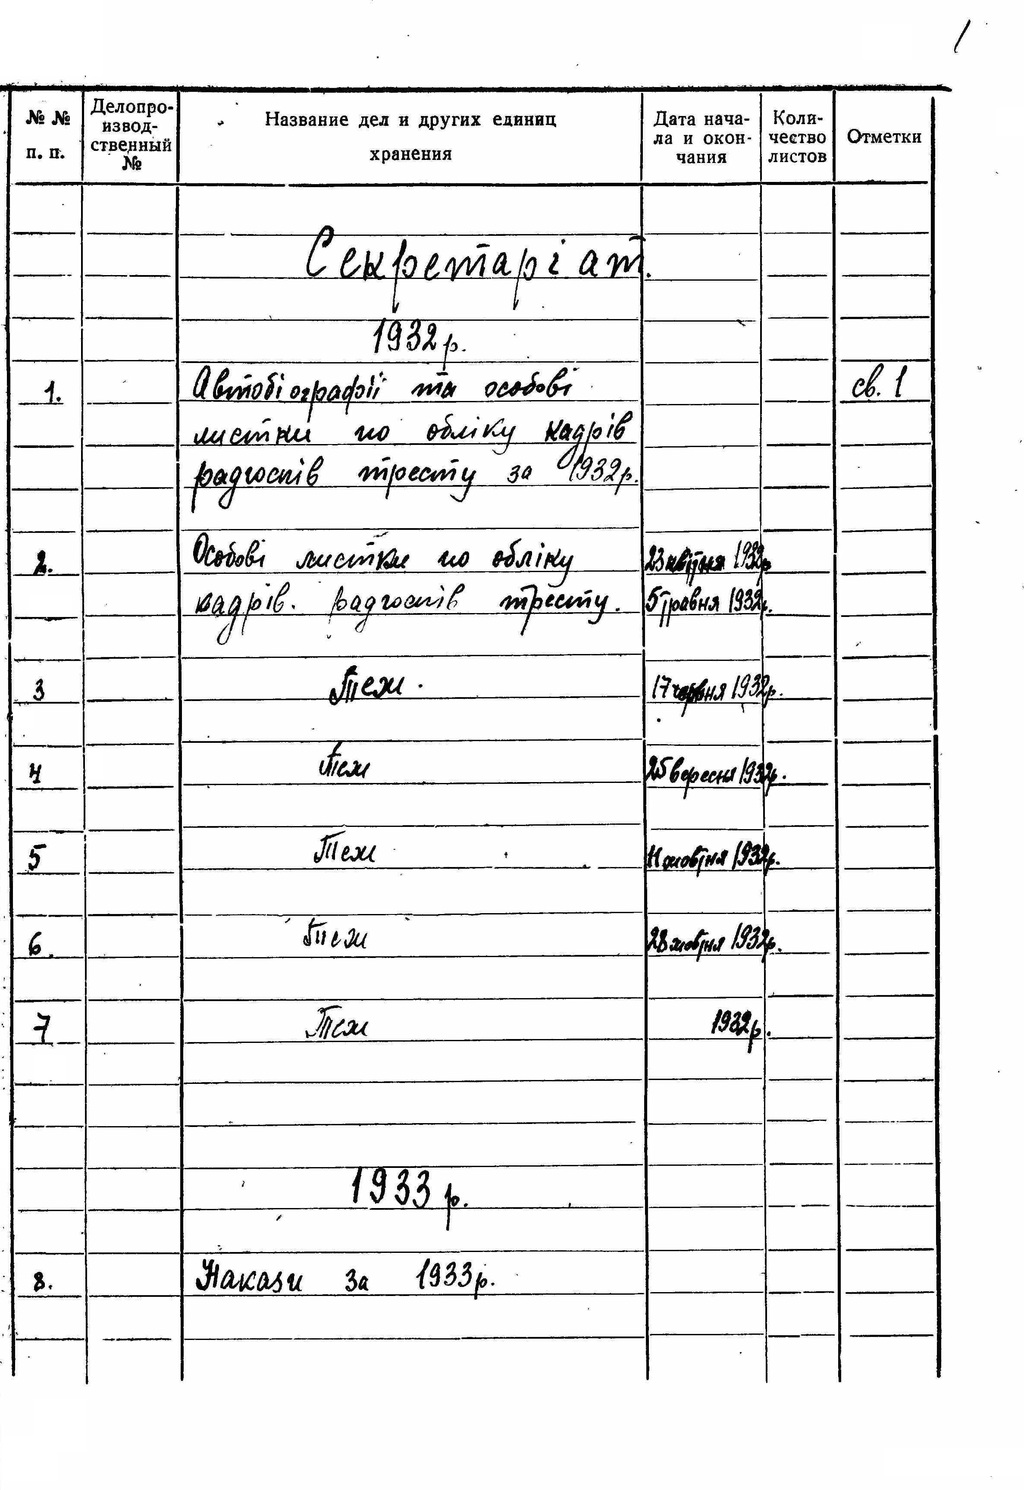 1
№ № п. п.
Делопро-
извод-
ственный
№
Название дел и других единиц
хранения
Дата нача-
ла и окон-
чания
Коли-
чество
листов
Отметки
Секретаріат.
1932 р.
1. Автобіографії та особові св. 1
листки по обліку кадрів
радгоспів тресту за 1932 р.
2. Особові листки по обліку 23 квітня 1932 р
кадрів. радгоспів тресту. 5 травня 1932 р.
3 Теж. 17 червня 1932 р.
4 Теж 25 вересня 1932 р.
5 Теж 11 жовтня 1932 р.
6. Теж 28 жовтня 1932 р.
7 Теж 1932 р.
1933 р.
8. Накази за 1933 р.